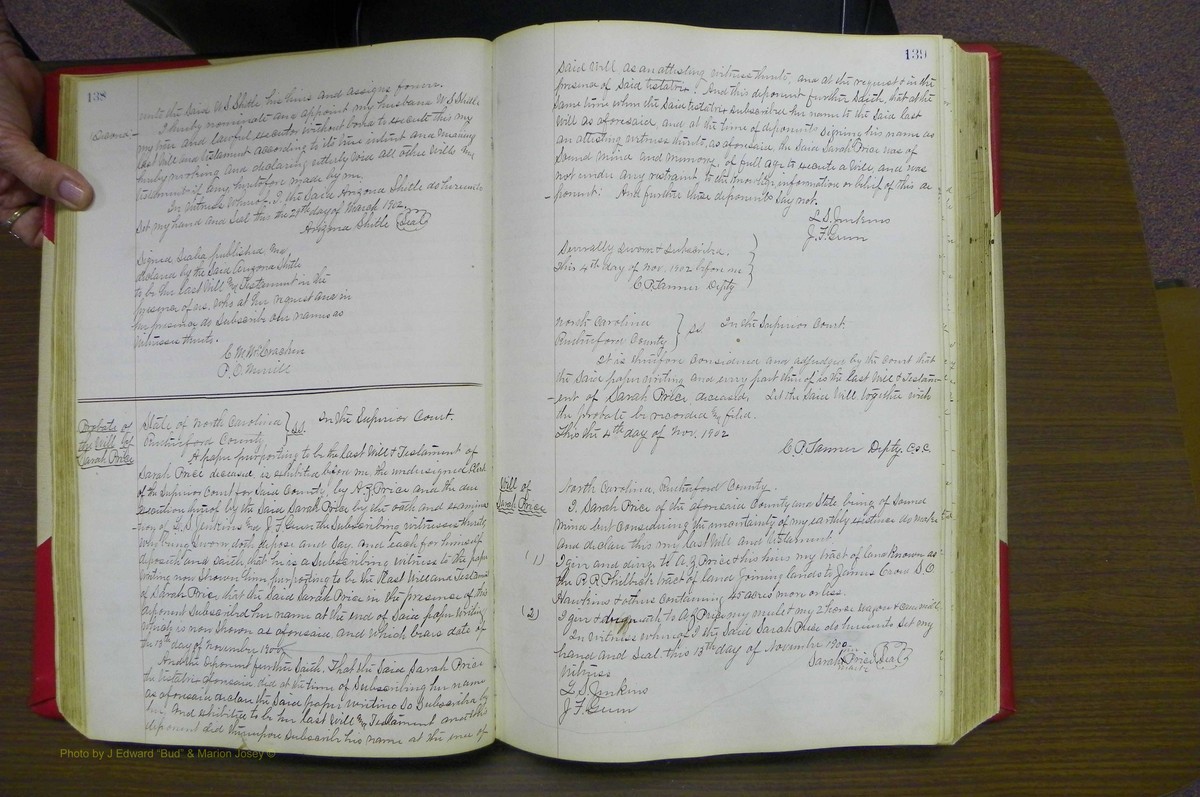 138
unto the said W S Shitle his heirs and assigns forever.
Second – I hereby nominate and appoint my husband W S Shitle
my true and lawful executor without bond to execute this my
last Will and testament according to its true intent and meaning
hereby revoking and declaring utterly void all other Wills &
testament if any heretofore made by me.
In Witness Whereof, I the said Arizona Shitle do hereunto
set my hand and Seal this the 28th day of March 1902.
Arizona Shitle (Seal)
Signed Sealed published and
declared by the said Arizona Shitle
to be her last Will & Testament in the
presence of us, who at her request and in
her presence do subscribe our names as
witnesses thereto.
E. W. McCracken
P. O. Merrill
Probate of
the Will of
Sarah Price
State of North Carolina
Rutherford County } SS. In the Superior Court.
A paper purporting to be the last Will & Testament of
Sarah Price deceased, is exhibited before me, the undersigned Clerk
of the Superior Court for said County, by A. J. Price and the due
execution thereof by the said Sarah Price by the oath and examina-
tion of L. S. Jenkins & J. F. Gunn the subscribing witnesses thereto,
who being sworn doth depose and say, and each for himself
deposeth and saith, that he is a subscribing witness to the paper
writing now shown him purporting to be the last Will and Testament
of Sarah Price, that the said Sarah Price in the presence of this
deponent subscribed her name at the end of said paper writing
which is now shown as aforesaid, and which bears date of
the 13th day of November
And the deponent further saith, That the said Sarah Price
the testatrix aforesaid did at the time of subscribing her name
as aforesaid declare the said paper writing so subscribed by
her, and exhibited to be her last Will & Testament and this
deponent did thereupon subscribe his name at the end of
139
said Will as an attesting witness thereto, and at the request & in the
presence of said testatrix. And this deponent further saith, that at the
same time when the said testatrix subscribed her name to the said last
Will as aforesaid, and at the time of deponents signing his name as
an attesting witness thereto, as aforesaid, the said Sarah Price was of
sound mind and memory, of full age to execute a Will, and was
not under any restraint to the knowledge, information or belief of this de
- ponent: And further these deponents say not.
L. S. Jenkins
J. F. Gunn
Severally sworn & subscribed,
this 4th day of Nov. 1902 before me
C P Tanner Depty
North Carolina
Rutherford County } SS. In the Superior Court.
It is therefore considered and adjudged by the court that
the said paper writing and every part thereof is the last Will & Testam-
- ent of Sarah Price deceased, Let the said Will together with
the probate be recorded & filed.
This the 4th day of Nov. 1902
C P Tanner Depty. C.S.C.
Will of
Sarah Price
North Carolina, Rutherford County.
I, Sarah Price of the aforesaid County and State being of sound
mind but considering the uncertainty of my earthly existence do make
and declare this my last Will and testament.
(1) I give and devise to A. J. Price & his heirs my tract of land known as
the R. R. Philbeck tract of land joining lands to James Crow D. O.
Hawkins & others containing 45 acres more or less.
(2) I give & bequeath to A J Price my mule & my 2 horse wagon & cane mill.
In witness whereof I the said Sarah Price do hereunto set my
hand and seal this 13th day of November 1900
Sarah Price (Seal)
Witness
L. S. Jenkins
J. F. Gunn
Photo by J Edward "Bud" & Marion Josey ©